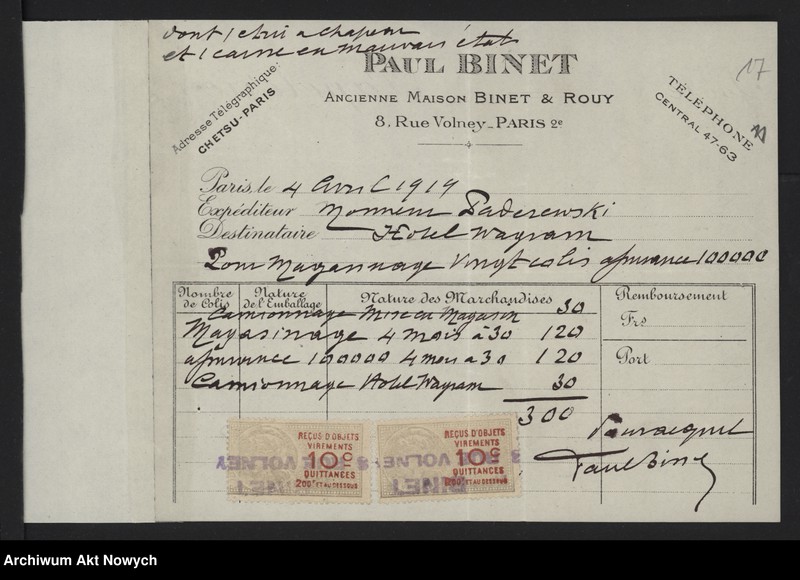 dont 1 étui a chapeau
et 1 caisse en mauvais état
PAUL BINET
ANCIENNE MAISON BINET & ROUY
8, RUE VOLNEY_PARIS 2e
Adresse Télégraphique:
CHETSU-PARIS
TÉLÉPHONE
CENTRAL 47-63
17
Paris, le 4 Avril 1919
Expéditeur Monsieur Paderewski
Destinataire Hotel Wagram
Pour Magasinage Vingt colis assurance 100000
Nombre de Colis
Nature de l'Emballage
Nature des Marchandises
Remboursement
Frs
Port
Camionnage Mise en Magasin 30
Magasinage 4 mois à 30 120
assurance 100000 4 mois a 30 120
Camionnage Hotel Wagram 30
300
Pour acquit
Paul Binet
REÇUS D'OBJETS
VIREMENTS
10c
QUITTANCES
200f ET AU DESSOUS
REÇUS D'OBJETS
VIREMENTS
10c
QUITTANCES
200f ET AU DESSOUS
8 RUE VOLNEY
BINET
8 RUE VOLNEY
BINET
Archiwum Akt Nowych